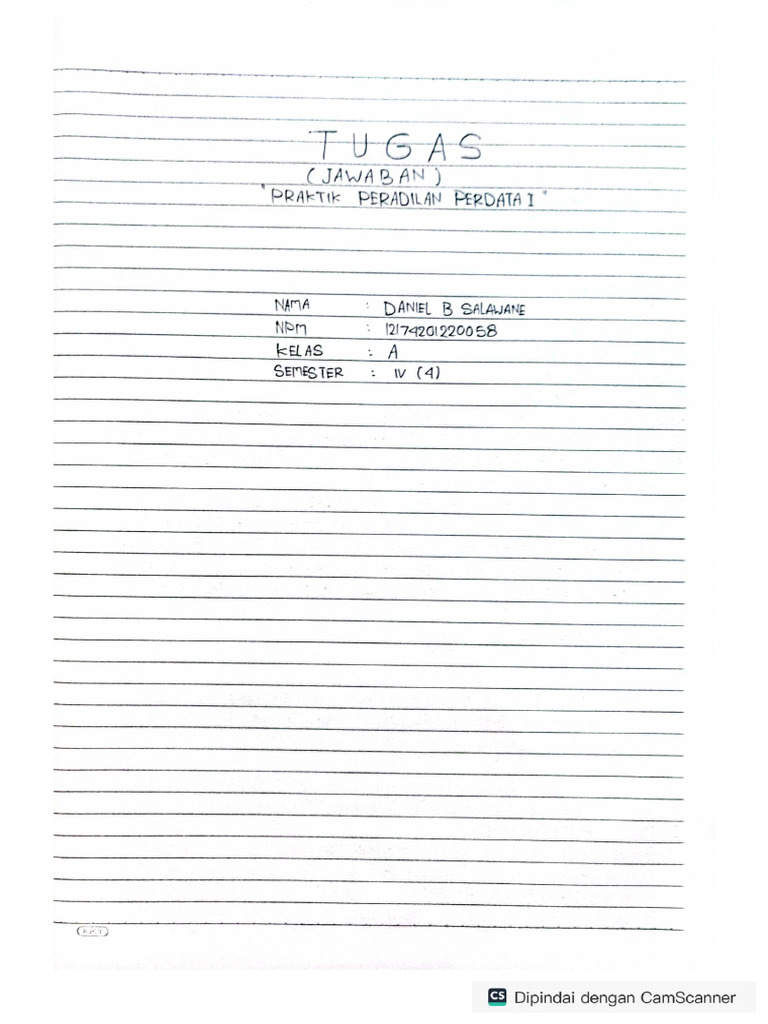 TUGAS
(JAWABAN)
"PRAKTIK PERADILAN PERDATA I"
NAMA : DANIEL B SALAWANE
NPM : 12174201220058
KELAS : A
SEMESTER : IV (4)
CS Dipindai dengan CamScanner